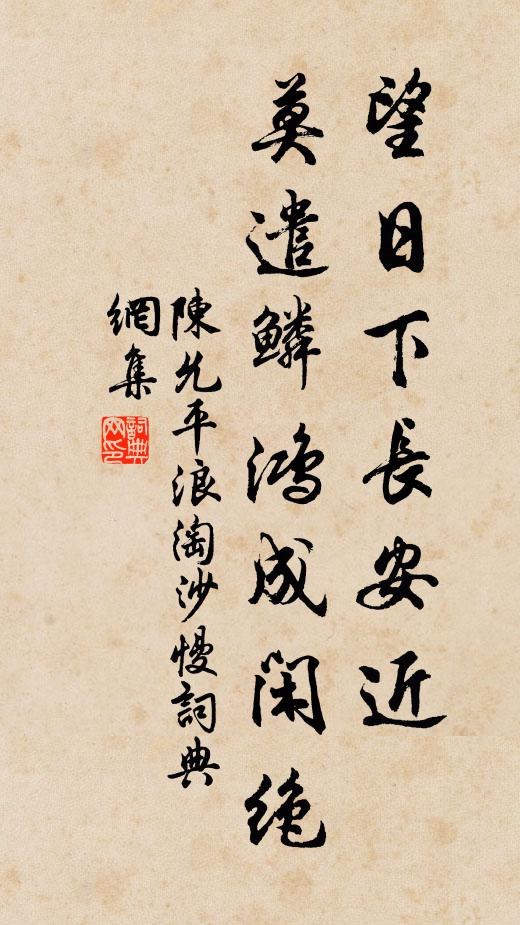 望日下長安近
莫遣鱗鴻成閑絶
陳允平浪淘沙慢詞典
網集
詞典
网印